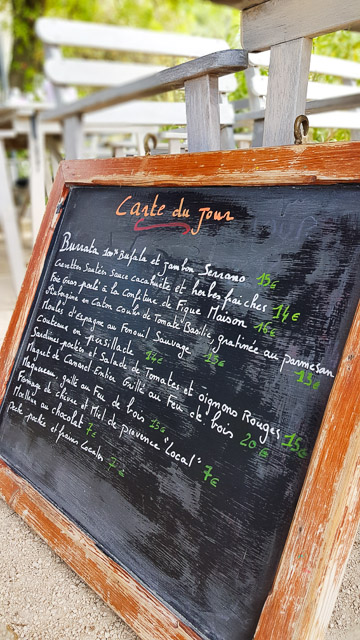 Carte du jour
Burrata 100% Bufala et jambon Serrano 15€
Crevettes Sautées Sauce cacahuète et herbes fraîches 14€
Foie Gras poêlé à la Confiture de Figue Maison 16€
en Cœur de Tomate Basilic, gratinée au parmesan 13€
Moules d'espagne au Fenouil Sauvage 15€
Couteaux en persillade 14€
Sardines poêlées et Salade de Tomates et oignons Rouges 15€
Magret de Canard Entier Grillé au Feu de bois 20€
Maquereau grillé au Feu de bois 15€
Fromage de Chèvre et Miel de provence "Local" 7€
Moelleux au chocolat 7€
et fraises Locales 7€